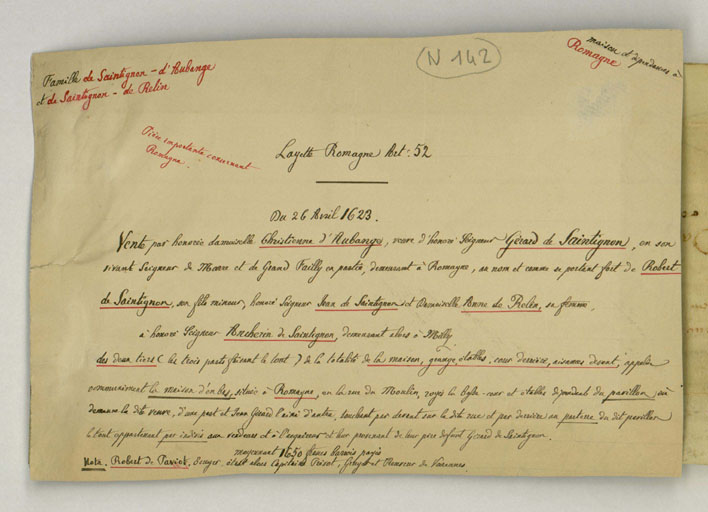 N 142
Famille de Saintignon - d'Aubange
et de Saintignon - de Relin
maison et dépendances à
Romagne
Pièce importante concernant
Romagne.
Layette Romagne Art. 52
Du 26 Avril 1623.
Vente par honorée damoiselle Christienne d'Aubange, veuve d'honoré Seigneur Gérard de Saintignon, en son
vivant Seigneur de et de Grand Failly en partie, demeurant à Romagne, au nom et comme se portant fort de Robert
de Saintignon, son fils mineur, honoré Seigneur Jean de Saintignon et Damoiselle Bonne de Relin, sa femme,
à honoré Seigneur de Saintignon, demeurant alors à Milly
des deux tiers (les trois parts faisant le tout) de la totalité de la maison, grange, étables, cour derrière, aisances devant, appelée
communément la maison d'en bas, située à Romagne, en la rue du Moulin, royes la basse-cour et étables dépendant du pavillon où
demeure la dite veuve, d'une part et Jean Gérard l'ainé d'autre, touchant par devant sur la dite rue et par derrière au parterre du dit pavillon
le tout appartenant par indivis aux vendeurs et à l'acquéreur et leur provenant de leur père defunt Gérard de Saintignon.
moyennant 1650 francs barrois payés
Nota. Robert de, Ecuyer, était alors Capitaine Prévot, Gruyer et Receveur de Varennes.